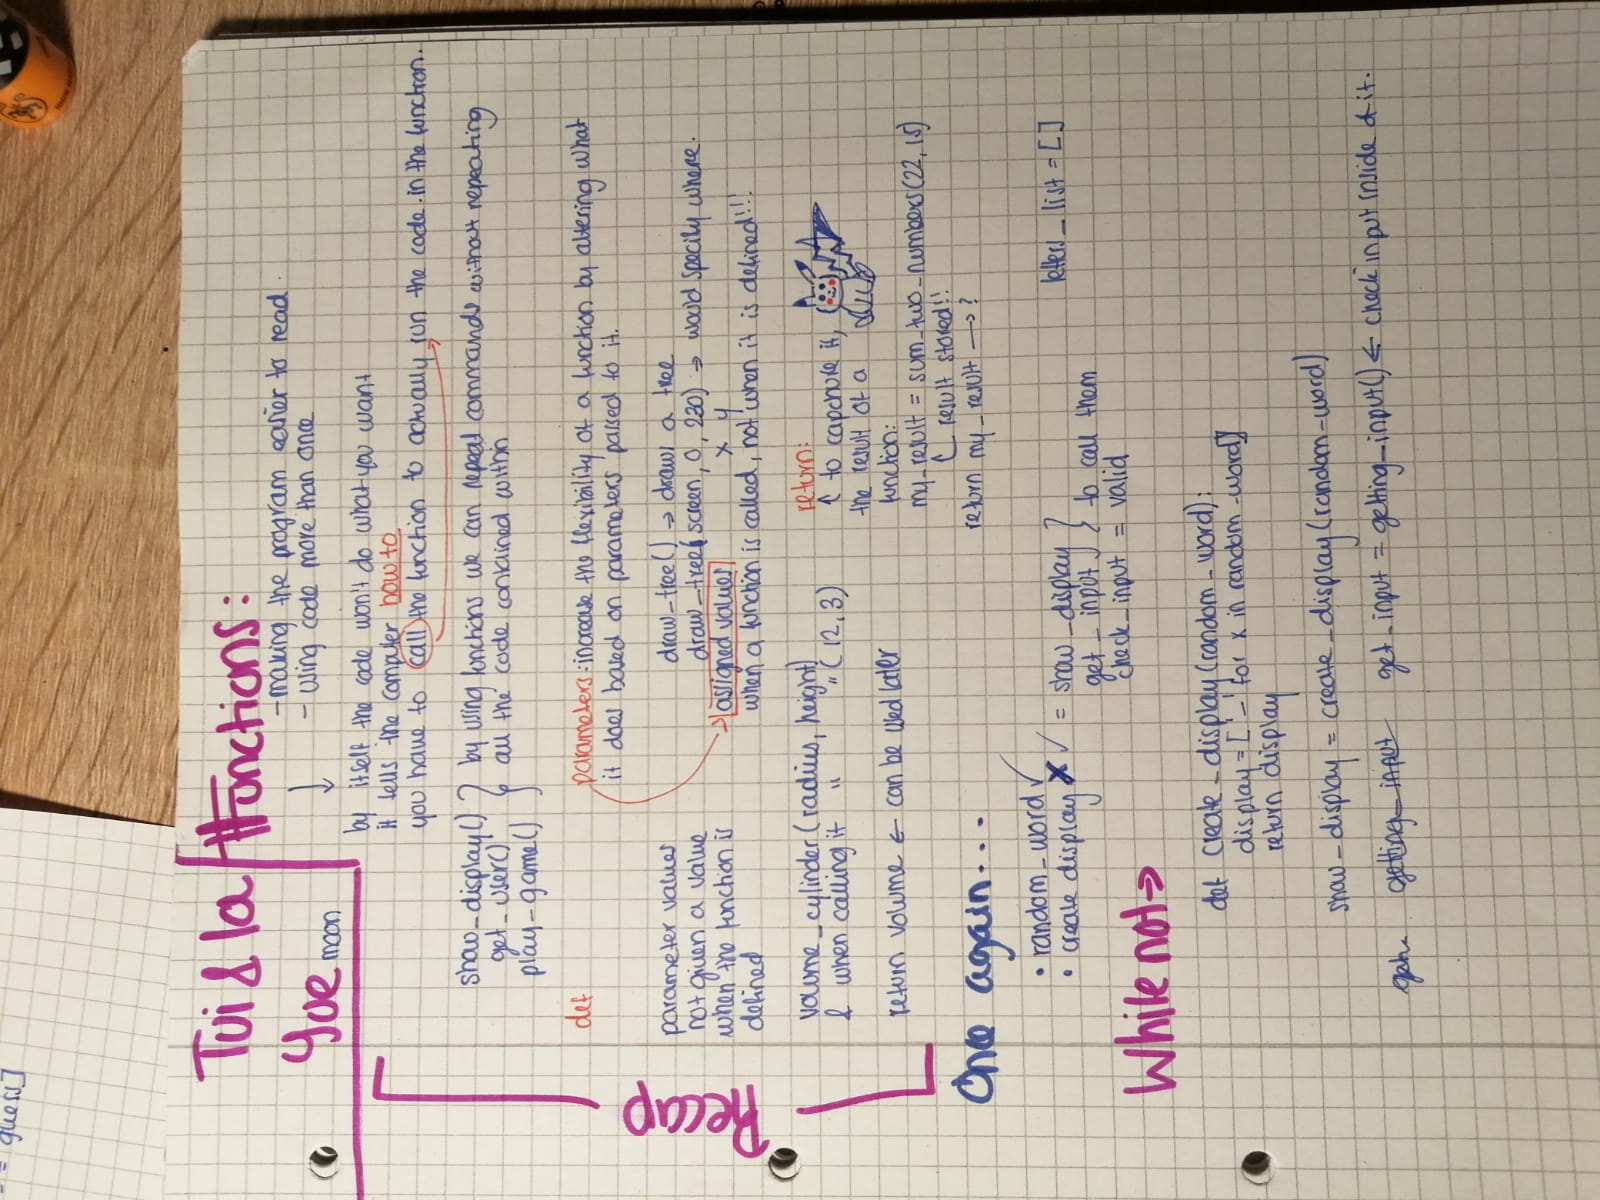 Tui & la
Yue moon
#Functions:
- making the program easier to read
- using code more than once
by itself the code won't do what you want
it tells the computer how to
you have to call the function to actually run the code in the function.
show_display()
get_user()
play_game()
by using functions we can repeat commands without repeating
all the code contained within
def
parameters: increase the flexibility of a function by altering what
it does based on parameters passed to it.
parameter values
not given a value
when the function is
defined
draw_tree() => draw a tree
draw_tree(screen, 0, 220) => would specify where.
x y
assigned values
when a function is called, not when it is defined!!!
volume_cylinder (radius, height)
& when calling it " " (12, 3)
return volume ← can be used later
return:
to capchure it,
the result of a
function:
my_result = sum_two_numbers(22, 15)
result stored!!
return my_result → ?
Reccap
One again...
• random_word ✓
• create display ✗ ✓ = show_display
get_input
check_input = valid
to call them
letters_list = []
While not →
def create_display(random_word):
display = ['_' for x in random_word]
return display
show_display = create_display(random_word)
getting_input get_input = getting_input() ← check input inside of it.
== guess]